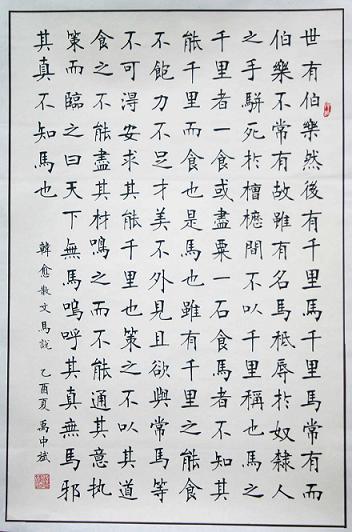 世有伯樂然後有千里馬千里馬常有而
伯樂不常有故雖有名馬秪辱於奴隸人
之手駢死於槽櫪間不以千里稱也馬之
千里者一食或盡粟一石食馬者不知其
能千里而食也是馬也雖有千里之能食
不飽力不足才美不外見且欲與常馬等
不可得安求其能千里也策之不以其道
食之不能盡其材鳴之而不能通其意执
策而臨之曰天下無馬嗚呼其真無馬邪
其真不知馬也
韓愈散文馬說 乙酉夏 禹中斌